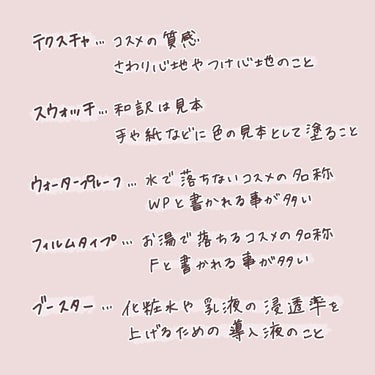 テクスチャ… コスメの質感
さわり心地やつけ心地のこと
スウォッチ… 和訳は見本
手や紙などに色の見本として塗ること
ウォータープルーフ … 水で落ちないコスメの名称
WPと書かれる事が多い
フィルムタイプ … お湯で落ちるコスメの名称
Fと書かれる事が多い
ブースター … 化粧水や乳液の浸透率を
上げるための導入液のこと